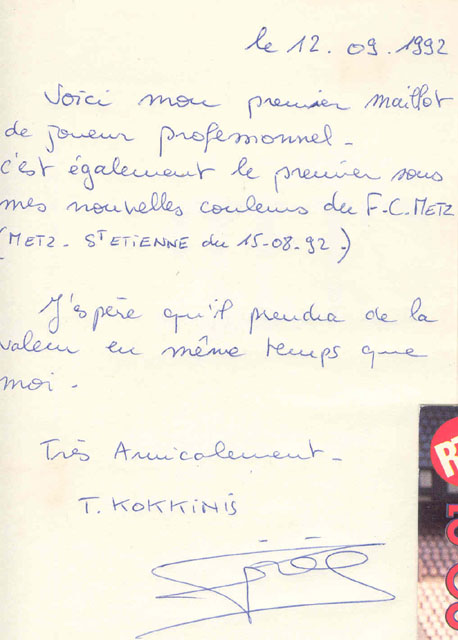 le 12.09.1992
Voici mon premier maillot
de joueur professionnel -
c'est également le premier sous
mes nouvelles couleurs du F-C-METZ
(METZ - ST ETIENNE du 15-08-92.)
J'espère qu'il prendra de la
valeur en même temps que
moi -
Très Amicalement -
T. KOKKINIS